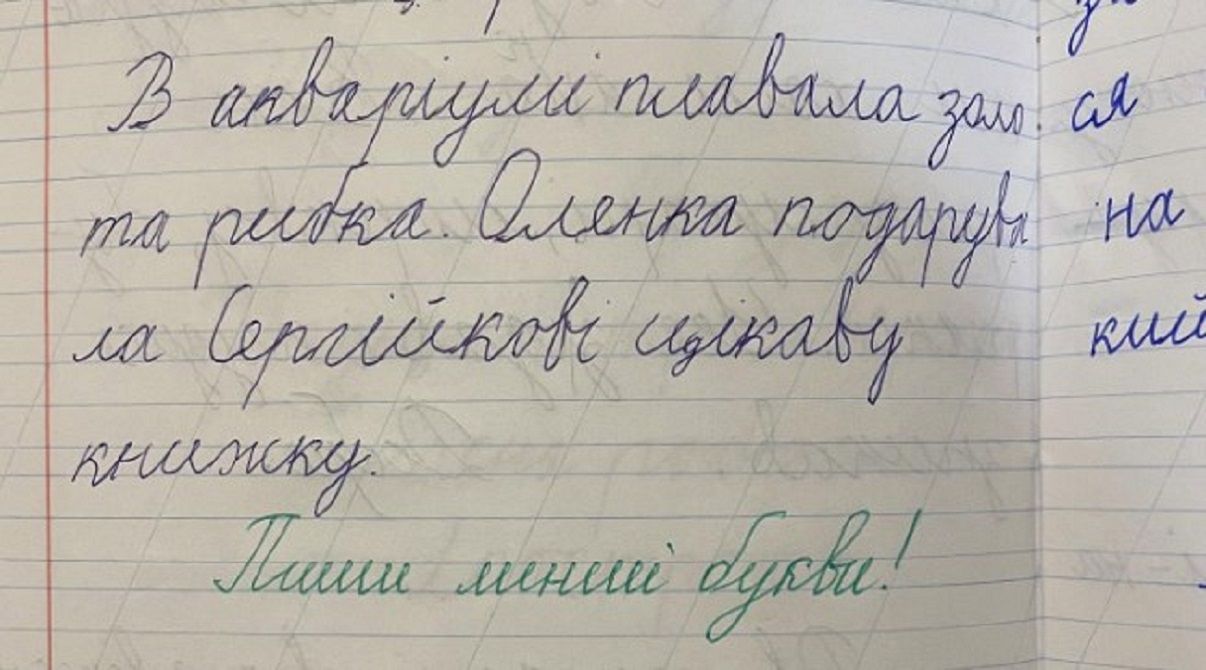 В акваріумі плавала золо
та рибка. Оленка подарува
ла Сергійкові цікаву
книжку.
Пиши менші букви!
ся
на
кий